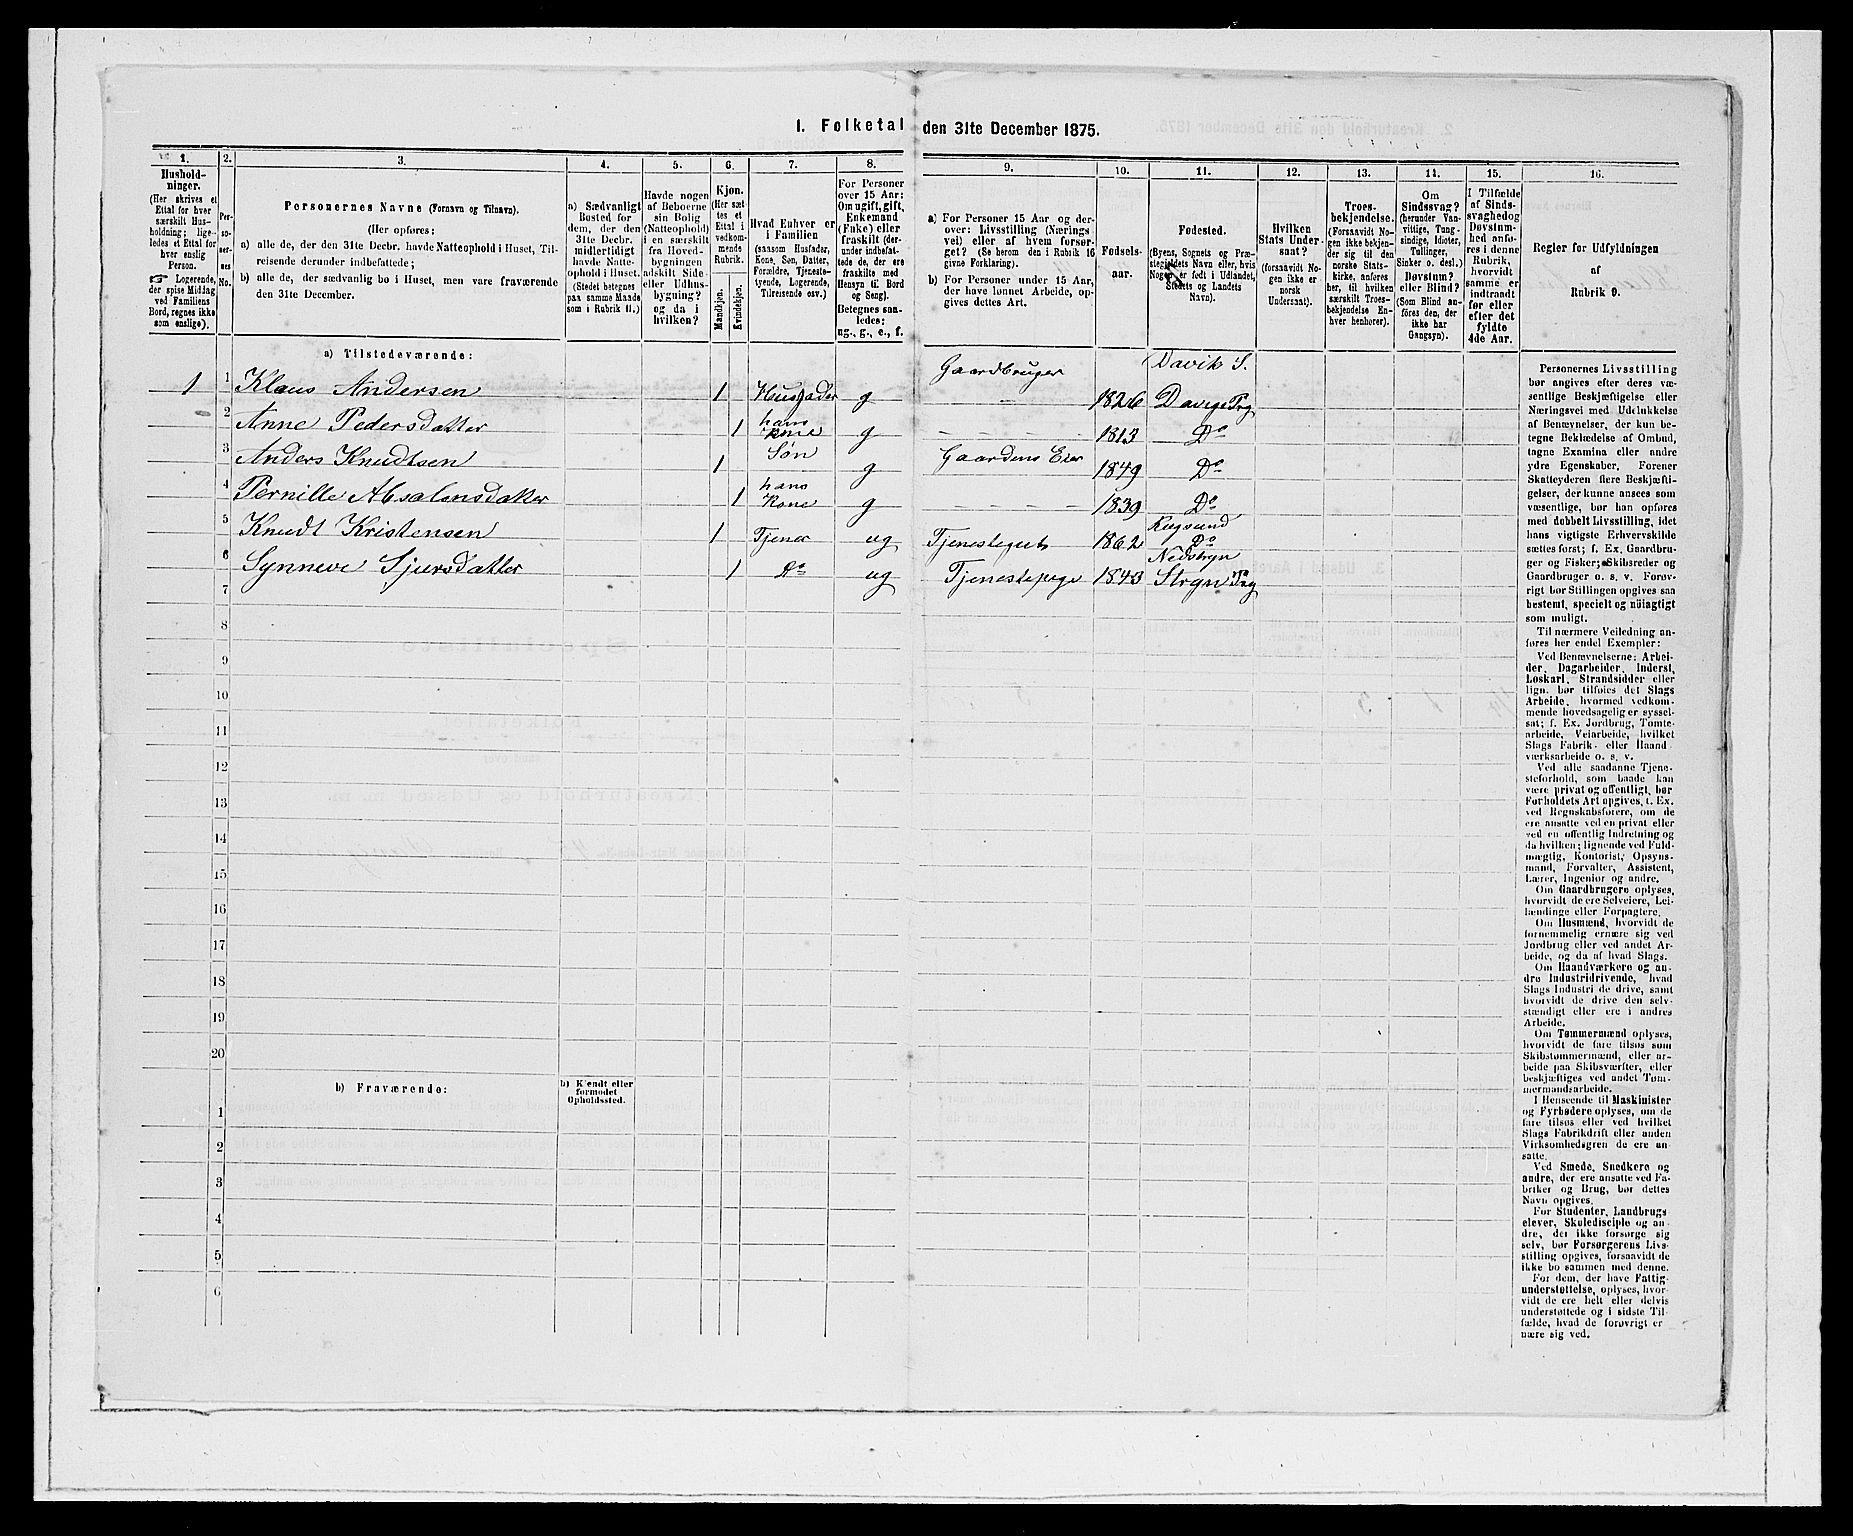 1. Folketal den 31te December 1875.
1. 2. 3. 4. 5. 6. 7. 8. 9. 10. 11. 12. 13. 14. 15. 16.
Hushold-
ninger.
(Her skrives et
Ettal for hver
særskilt Hus-
holdning; lige-
ledes et Ettal for
hver enslig
Person.
☞ Logerende,
der spise Middag
ved Familiens
Bord, regnes ikke
som enslige).
Per-
so-
ner-
nes
No.
Personernes Navne (Fornavn og Tilnavn).
(Her opføres:
a) alle de, der den 31te Decbr. havde Natteophold i Huset, Til-
reisende derunder indbefattede;
b) alle de, der sædvanlig bo i Huset, men vare fraværende
den 31te December.
a) Sædvanligt
Bosted for
dem, der den
31te Decbr.
midlertidigt
havde Natte-
ophold i Huset.
(Stedet betegnes
paa samme Maade
som i Rubrik 11.)
Havde nogen
af Beboerne
sin Bolig
(Natteophold)
i en særskilt
fra Hoved-
bygningen
adskilt Side-
eller Udhus-
bygning?
og da i
hvilken?
Kjøn.
(Her sæt-
tes et
Ettal i
vedkom-
mende
Rubrik.
Mandkjøn.
Kvindekjøn.
Hvad Enhver er
i Familien
(saasom Husfader,
Kone, Søn, Datter,
Forældre, Tjeneste-
tyende, Logerende,
Tilreisende osv.)
For Personer
over 15 Aar:
Om ugift, gift,
Enkemand
(Enke) eller
fraskilt (der-
under indbefat-
tede de, der ere
fraskilte med
Hensyn til Bord
og Seng).
Betegnes saa-
ledes:
ug., g., e., f.
a) For Personer 15 Aar og der-
over: Livsstilling (Nærings
vei) eller af hvem forsør-
get? (Se herom den i Rubrik 16
givne Forklaring).
b) For Personer under 15 Aar,
der have lønnet Arbeide, op-
gives dettes Art.
Fødsels-
aar.
Fødested.
(Byens, Sognets og Præ-
stegjeldets Navn eller, hvis
Nogen er født i Udlandet,
Stedets og Landets
Navn).
Hvilken
Stats Under-
saat?
(forsaavidt No-
gen ikke er
norsk
Undersaat).
Troes-
bekjendelse.
(Forsaavidt No-
gen ikke bekjen-
der sig til den
norske Stats-
kirke, anføres
her, til hvilken
særskilt Troes-
bekjendelse En-
hver henhører).
Om
Sindssvag?
(herunder Van-
vittige, Tung-
sindige, Idioter,
Tullinger,
Sinker o. desl.)
Døvstum?
eller Blind?
(Som Blind an-
føres den, der
ikke har
Gangsyn).
I Tilfælde
af Sinds-
svaghed og
Døvstum-
hed anfø-
res i denne
Rubrik,
hvorvidt
samme er
indtraadt
før eller
efter det
fyldte
4de Aar.
Regler for Udfyldningen
af
Rubrik 9.
a) Tilstedeværende:
1 1 Klaus Andersen 1 Husfader g Gaardbruger 1826 Davik S. Davigs Prg
2 Anne Pedersdatter 1 hans Kone g - - - - 1813 Do
3 Anders Knudtsen 1 Søn g Gaardens Eier 1849 Do
4 Pernille Absalonsdatter 1 hans Kone g - - - - 1839 Do
5 Knudt Kristensen 1 Tjener ug Tjenestegut 1862 Rugsund Do
6 Synneve Sjursdatter 1 Do ug Tjenestepige 1843 Nedstryn Stryn Prg
7
8
9
10
11
12
13
14
15
16
17
18
19
20
b) Fraværende:
b) Kjendt eller
formodet
Opholdssted.
1
2
3
4
5
6
Personernes Livsstilling
bør angives efter deres væ-
sentlige Beskjæftigelse eller
Næringsvei med Udelukkelse
af Benævnelser, der kun be-
tegne Beklædelse af Ombud,
tagne Examina eller andre
ydre Egenskaber. Forener
Skatteyderen flere Beskjæfti-
gelser, der kunne ansees som
væsentlige, bør han opføres
med dobbelt Livsstilling, idet
hans vigtigste Erhvervskilde
sættes først; f. Ex. Gaardbru-
ger og Fisker; Skibsreder og
Gaardbruger o. s. v. Forøv-
rigt bør Stillingen opgives saa
bestemt, specielt og nøiagtigt
som muligt.
Til nærmere Veiledning an-
føres her endel Exempler:
Ved Benævnelserne: Arbei-
der, Dagarbeider, Inderst,
Løskarl, Strandsidder eller
lign. bør tilføies det Slags
Arbeide, hvormed vedkom-
mende hovedsagelig er syssel-
sat; f. Ex. Jordbrug, Tømte-
arbeide, Veiarbeide, hvilket
Slags Fabrik- eller Haand
værksarbeide o. s. v.
Ved alle saadanne Tjene-
steforhold, som baade kan
være privat og offentligt, bør
Forholdets Art opgives, t. Ex.
ved Regnskabsførere, om de
ere ansatte ved en privat eller
ved en offentlig Indretning og
da hvilken; lignende ved Fuld-
mægtig, Kontorist, Opsyns-
mand, Forvalter, Assistent,
Lærer, Ingeniør og andre.
Om Gaardbrugere oplyses,
hvorvidt de ere Selveiere, Lei-
lændinge eller Forpagtere.
Om Husmænd, hvorvidt de
fornemmelig ernære sig ved
Jordbrug eller ved andet Ar-
beide, og da af hvad Slags.
Om Haandværkere og an-
dre Industridrivende, hvad
Slags Industri de drive, samt
hvorvidt de drive den selv-
stændigt eller ere i andres
Arbeide.
Om Tømmermænd oplyses,
hvorvidt de fare tilsøs som
Skibstømmermænd, eller ar-
beide paa Skibsværfter, eller
beskjæftiges ved andet Tøm-
mermandsarbeide.
I Henseende til Maskinister
og Fyrbødere oplyses, om de
fare tilsøs eller ved hvilket
Slags Fabrikdrift eller anden
Virksomhedsgren de ere an-
satte.
Ved Smede, Snedkere og
andre, der ere ansatte ved Fa-
briker og Brug, bør dettes
Navn opgives.
For Studenter, Landbrugs
elever, Skoledisciple og an-
dre, det ikke forsørge sig
selv, bør Forsørgerens Livs-
stilling opgives, forsaavidt de
ikke bo sammen med denne.
For dem, der have Fattig-
understøttelse, oplyses, hvor-
vidt de ere helt eller delvis
understøttede og i sidste Til-
fælde, hvad de forøvrigt er
nære sig ved.